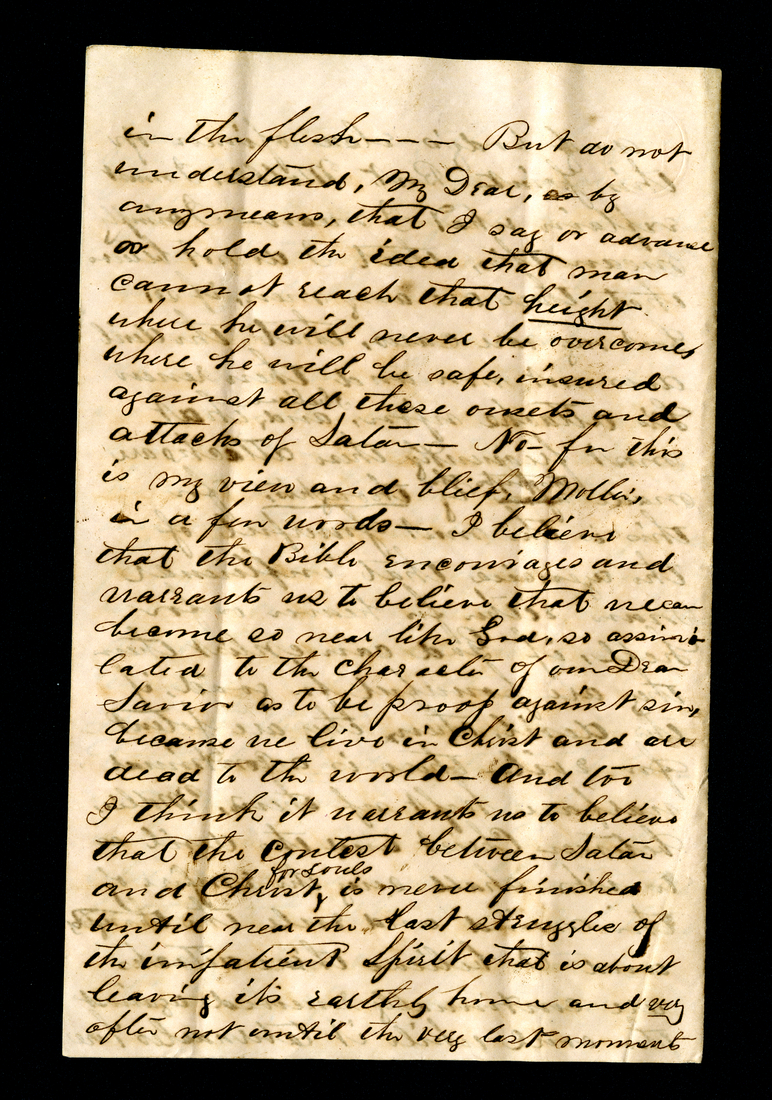 in the flesh - - - But do not
understand, My Dear, as by
anymeans, that I say or advance
or hold the idea that man
cannot reach that height
where he will never be overcome,
where he will be safe, insured
against all these onsets and
attacks of Satan — No — for this
is my view and blief, Mollie,
in a few words — I believe
that the Bible encourages and
warrants us to believe that we can
become so near like God, so assimi-
lated to the character of our Dear
Savior as to be proof against sin,
because we live in Christ and are
dead to the world — And too
I think it warrants us to believe
that the contest between Satan
for souls
and Christ, is never finished
until near the last struggles of
the impatient Spirit that is about
leaving it's earthly home and very
often not until the very last moment